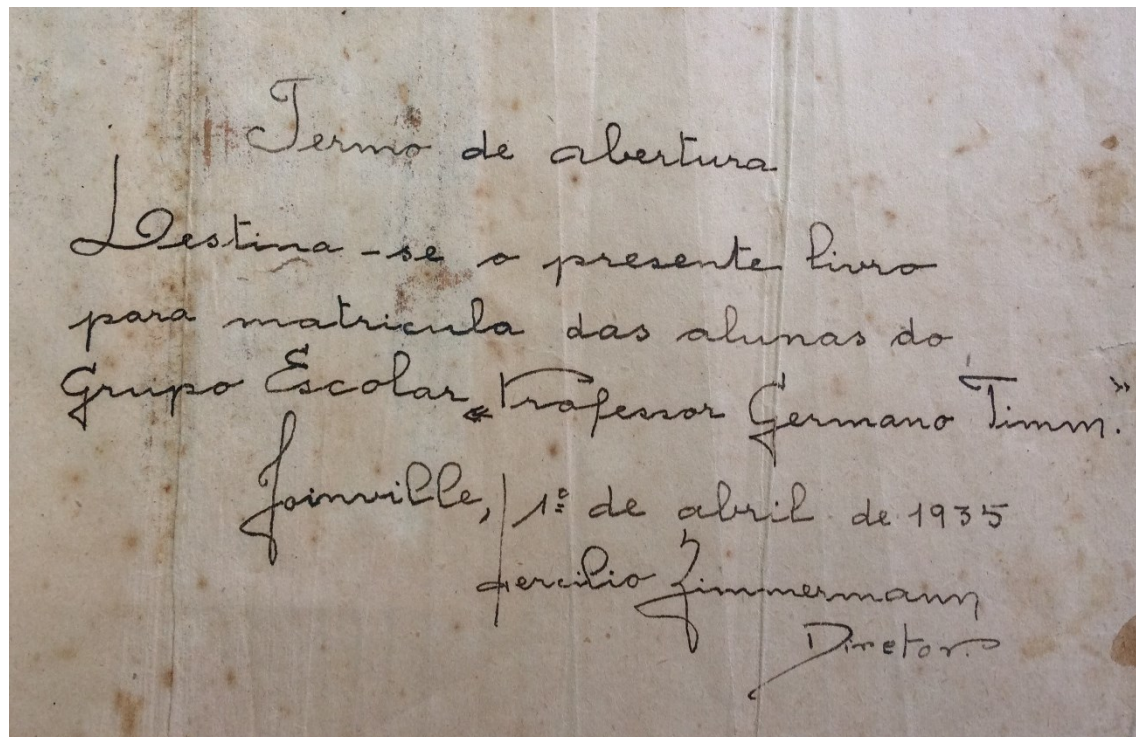 Termo de abertura
Destina-se o presente livro
para matricula das alunas do
Grupo Escolar «Professor Germano Timm.»
Joinville, 1º de abril de 1935
Hercilio Zimmermann
Diretor.